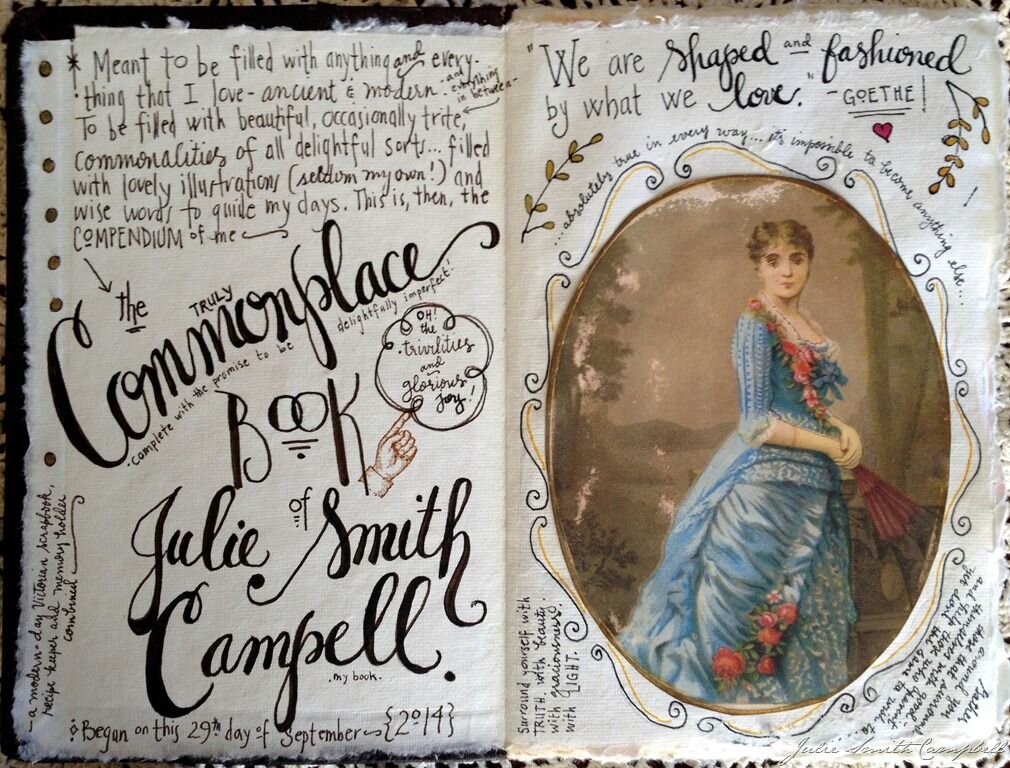 * Meant to be filled with anything and every-
thing that I love - ancient & modern - and everything in between -
To be filled with beautiful, occasionally trite,
commonalities of all delightful sorts... filled
with lovely illustrations (seldom my own!) and
wise words to guide my days. This is, then, the
COMPENDIUM of me
the
TRULY
Commonplace
delightfully imperfect!
• complete with the promise to be
BOOK
OH!
the
trivilities
and
glorious
joy!
of
Julie Smith
Campell.
my book.
- a modern-day Victorian scrapbook,
recipe keeper and memory holder
combined
Begun on this 29th day of September {2014}
"We are shaped and fashioned
by what we love." - GOETHE!
...absolutely true in every way... it's impossible to become anything else... !
Surround yourself with
TRUTH. with beauty.
with graciousness.
with LIGHT.
Gather
around you
those that surround
themselves with good.
and help those who haven't
yet
the same
Julie Smith Campbell